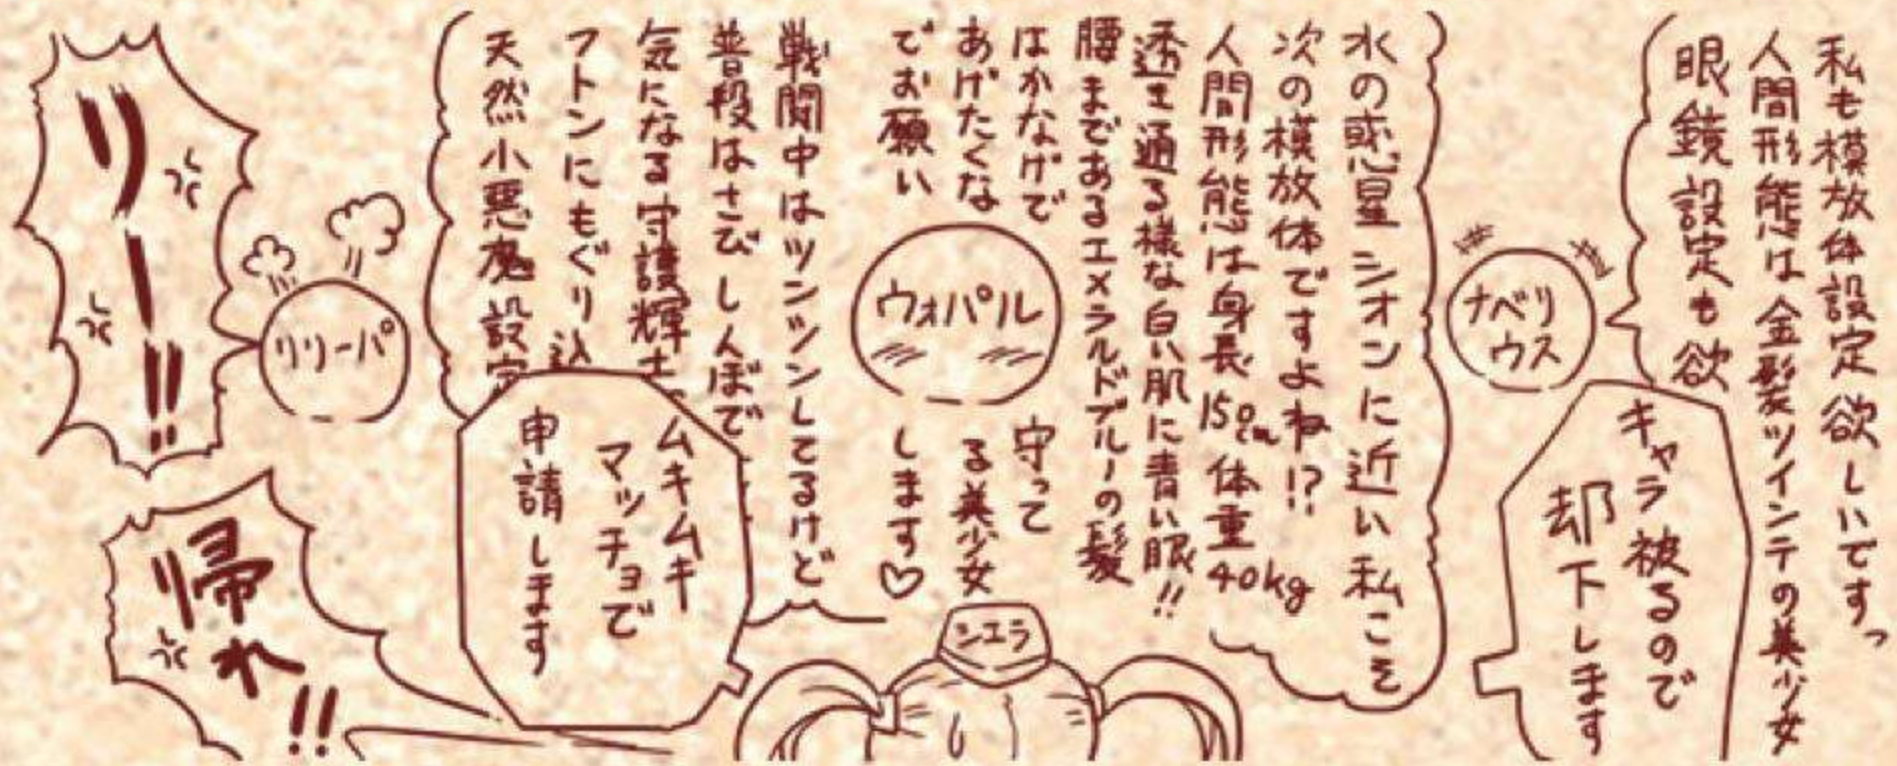 私も模放体設定欲しいですっ
人間形態は金髪ツインテの美少女
眼鏡設定も欲
ナベリ
ウス
キャラ被るので
却下します
水の惑星シオンに近い私こそ
次の模放体ですよね!?
人間形態は身長150cm体重40kg
透き通る様な白い肌に青い眼!!
腰まであるエメラルドブルーの髪
はかなげで守って
あげたくなる美少女
でお願いします♡
ウォパル
戦闘中はツンツンしてるけど
普段はさびしんぼで
気になる守護輝士
フトンにもぐり込
天然小悪魔設定
シエラ
ムキムキ
マッチョで
申請します
リリーパ
りー!!
帰れ!!